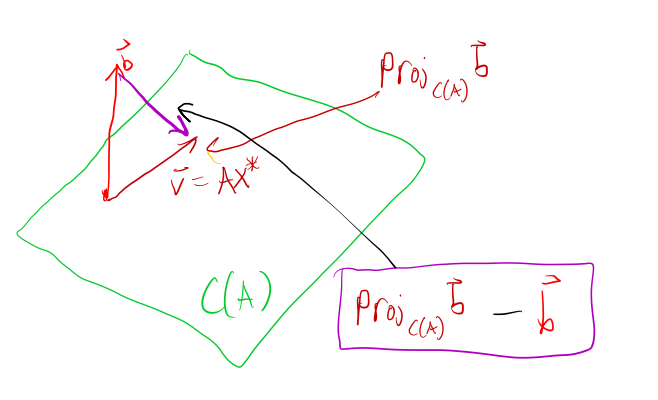 b⃗
Proj_C(A) b⃗
v⃗ = Ax*
C(A)
Proj_C(A) b⃗ − b⃗